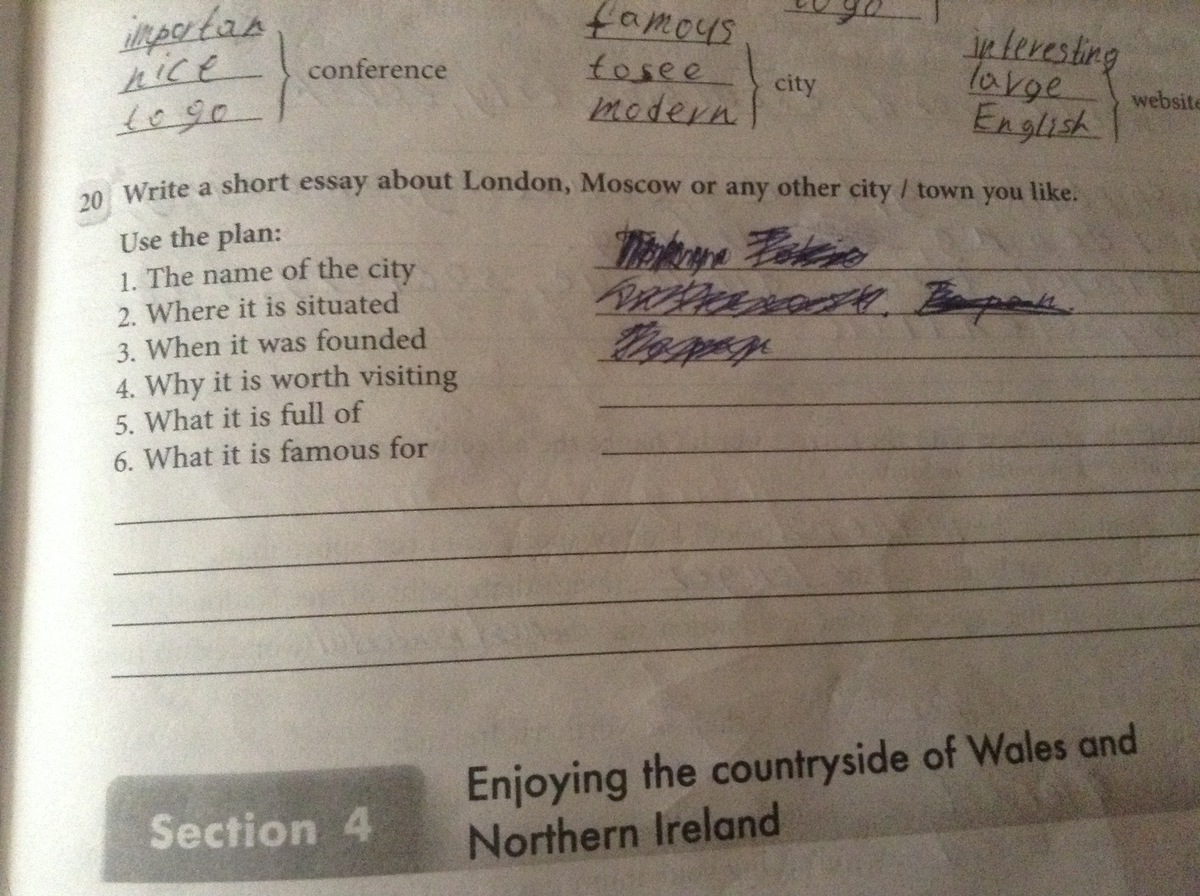 to go
importan
famous
interesting
nice
conference
to see
city
large
website
to go
modern
English
20 Write a short essay about London, Moscow or any other city / town you like.
Use the plan:
1. The name of the city
2. Where it is situated
3. When it was founded
4. Why it is worth visiting
5. What it is full of
6. What it is famous for
Section 4
Enjoying the countryside of Wales and
Northern Ireland